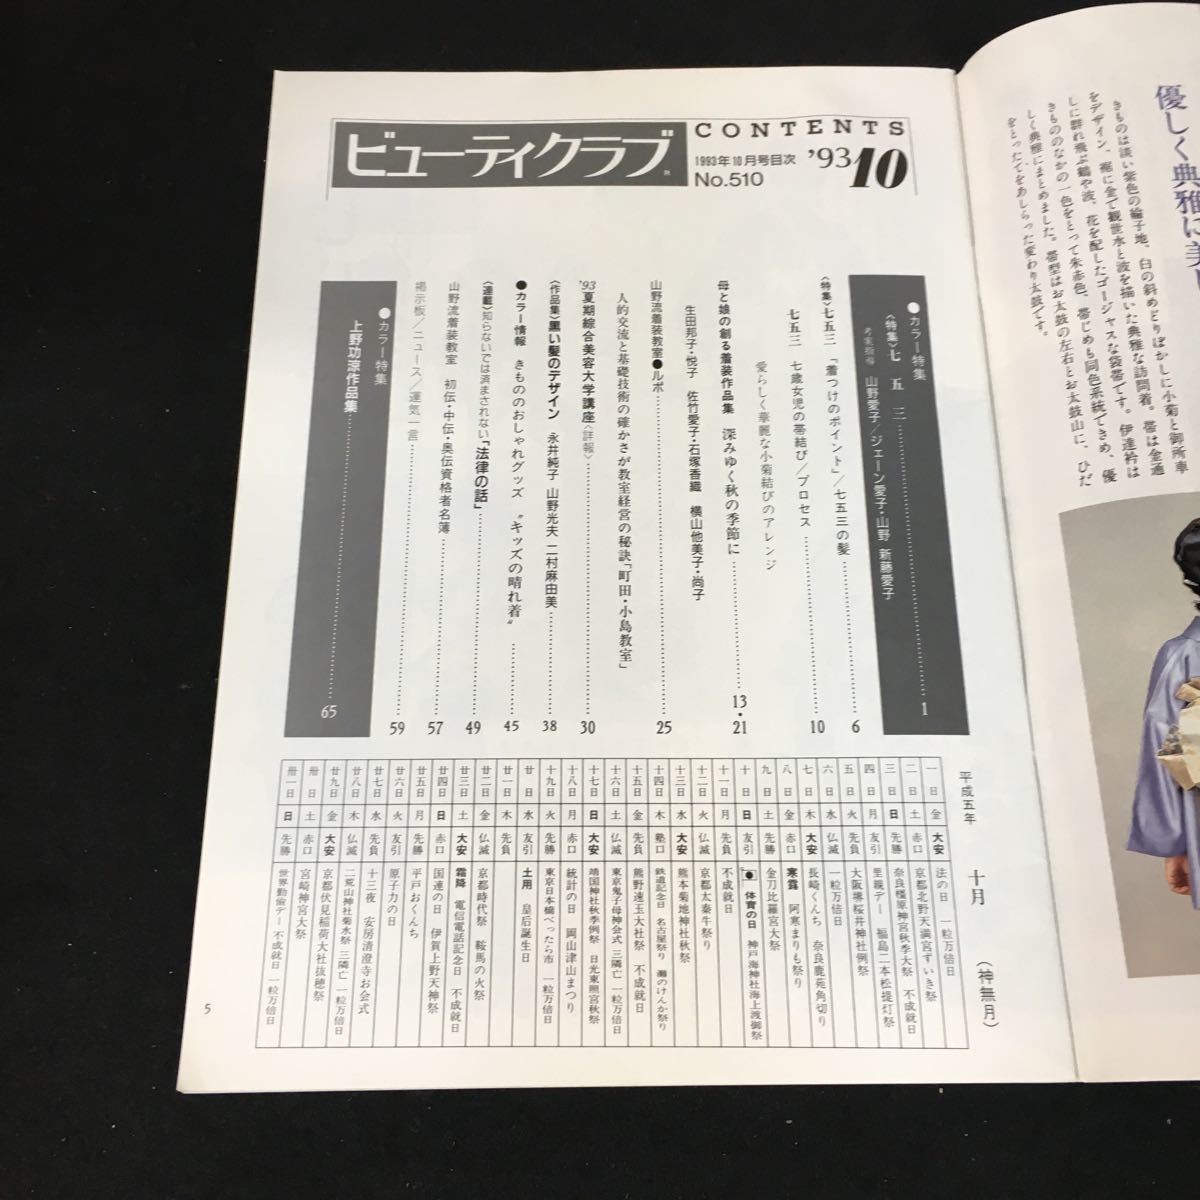 ビューティクラブ
CONTENTS
1993年10月号目次
No.510
'93 10
●カラー特集
〈特集〉七五三 1
考案指導 山野愛子/ジェーン愛子・山野 新藤愛子
〈特集〉七五三 「着つけのポイント」/七五三の髪 6
七五三 七歳女児の帯結び/プロセス 10
愛らしく華麗な小菊結びのアレンジ
母と娘の創る着装作品集 深みゆく秋の季節に 13・21
生田邦子・悦子 佐竹愛子・石塚香織 横山他美子・尚子
山野流着装教室●ルポ 25
人的交流と基礎技術の確かさが教室経営の秘訣「町田・小島教室」
'93夏期綜合美容大学講座〈詳報〉 30
〈作品集〉黒い髪のデザイン 永井純子 山野光夫 二村麻由美 38
●カラー情報 きもののおしゃれグッズ 〝キッズの晴れ着〟 45
〈連載〉知らないでは済まされない「法律の話」 49
山野流着装教室 初伝・中伝・奥伝資格者名簿 57
掲示板/ニュース/運気一言 59
●カラー特集
上野功涼作品集 65
平成五年 十月 (神無月)
一日 金 大安 法の日 一粒万倍日
二日 土 赤口 京都北野天満宮ずいき祭
三日 日 先勝 奈良橿原神宮秋季大祭 不成就日
四日 月 友引 里親デー 福島二本松提灯祭
五日 火 先負 大阪堺桜井神社例祭
六日 水 仏滅 一粒万倍日
七日 木 大安 長崎くんち 奈良鹿苑角切り
八日 金 赤口 寒露 阿寒まりも祭り
九日 土 先勝 金刀比羅宮大祭
十日 日 友引 体育の日 神戸海神社海上渡御祭
十一日 月 先負 不成就日
十二日 火 仏滅 京都太秦牛祭り
十三日 水 大安 熊本菊地神社秋祭
十四日 木 赤口 鉄道記念日 名古屋祭り 灘のけんか祭り
十五日 金 先負 熊野速玉大社祭 不成就日
十六日 土 仏滅 東京鬼子母神会式 三隣亡 一粒万倍日
十七日 日 大安 靖国神社秋季例祭 日光東照宮秋祭
十八日 月 赤口 統計の日 岡山津山まつり
十九日 火 先勝 東京日本橋べったら市 一粒万倍日
廿日 水 友引 土用 皇后誕生日
廿一日 木 先負
廿二日 金 仏滅 京都時代祭 鞍馬の火祭
廿三日 土 大安 霜降 電信電話記念日 不成就日
廿四日 日 赤口 国連の日 伊賀上野天神祭
廿五日 月 先勝 平戸おくんち
廿六日 火 友引 原子力の日
廿七日 水 先負 十三夜 安房清澄寺お会式
廿八日 木 仏滅 二荒山神社菊水祭 三隣亡 一粒万倍日
廿九日 金 大安 京都伏見稲荷大社抜穂祭
卅日 土 赤口 宮崎神宮大祭
卅一日 日 先勝 世界勤倹デー 不成就日 一粒万倍日
5
優しく典雅に美し
きものは淡い紫色の綸子地、白の斜めどりぼかしに小菊と御所車
をデザイン、裾に金で観世水と波を描いた典雅な訪問着。帯は金通
しに群れ飛ぶ鶴や波、花を配したゴージャスな袋帯です。伊達衿は
きもののなかの一色をとって朱赤色、帯じめも同色系統できめ、優
しく典雅にまとめました。帯型はお太鼓の左右とお太鼓山に、ひだ
をとったてをあしらった変わり太鼓です。